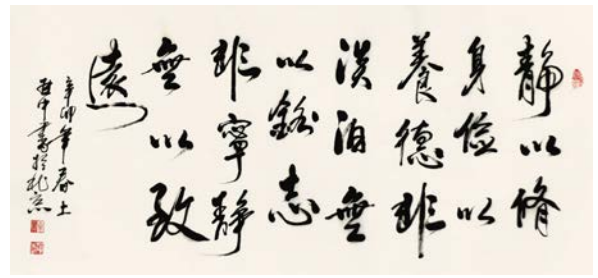 靜以脩
身儉以
養德非
淡泊無
以銘志
非寧靜
無以致
遠
辛卯年春上
中書於